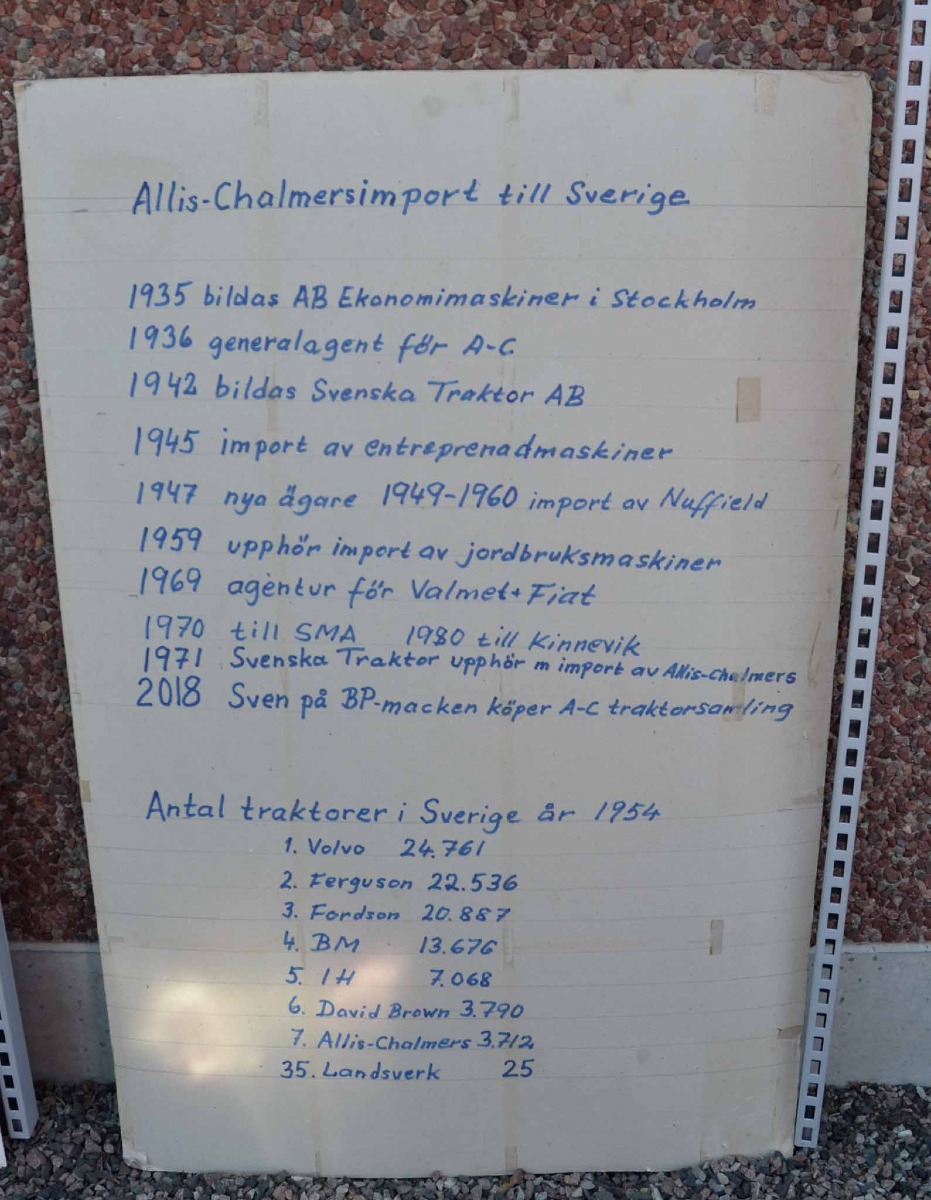 Allis-Chalmersimport till Sverige
1935 bildas AB Ekonomimaskiner i Stockholm
1936 generalagent för A-C
1942 bildas Svenska Traktor AB
1945 import av entreprenadmaskiner
1947 nya ägare 1949-1960 import av Nuffield
1959 upphör import av jordbruksmaskiner
1969 agentur för Valmet+Fiat
1970 till SMA 1980 till Kinnevik
1971 Svenska Traktor upphör m import av Allis-Chalmers
2018 Sven på BP-macken köper A-C traktorsamling
Antal traktorer i Sverige år 1954
1. Volvo 24.761
2. Ferguson 22.536
3. Fordson 20.887
4. BM 13.676
5. IH 7.068
6. David Brown 3.790
7. Allis-Chalmers 3.712
35. Landsverk 25